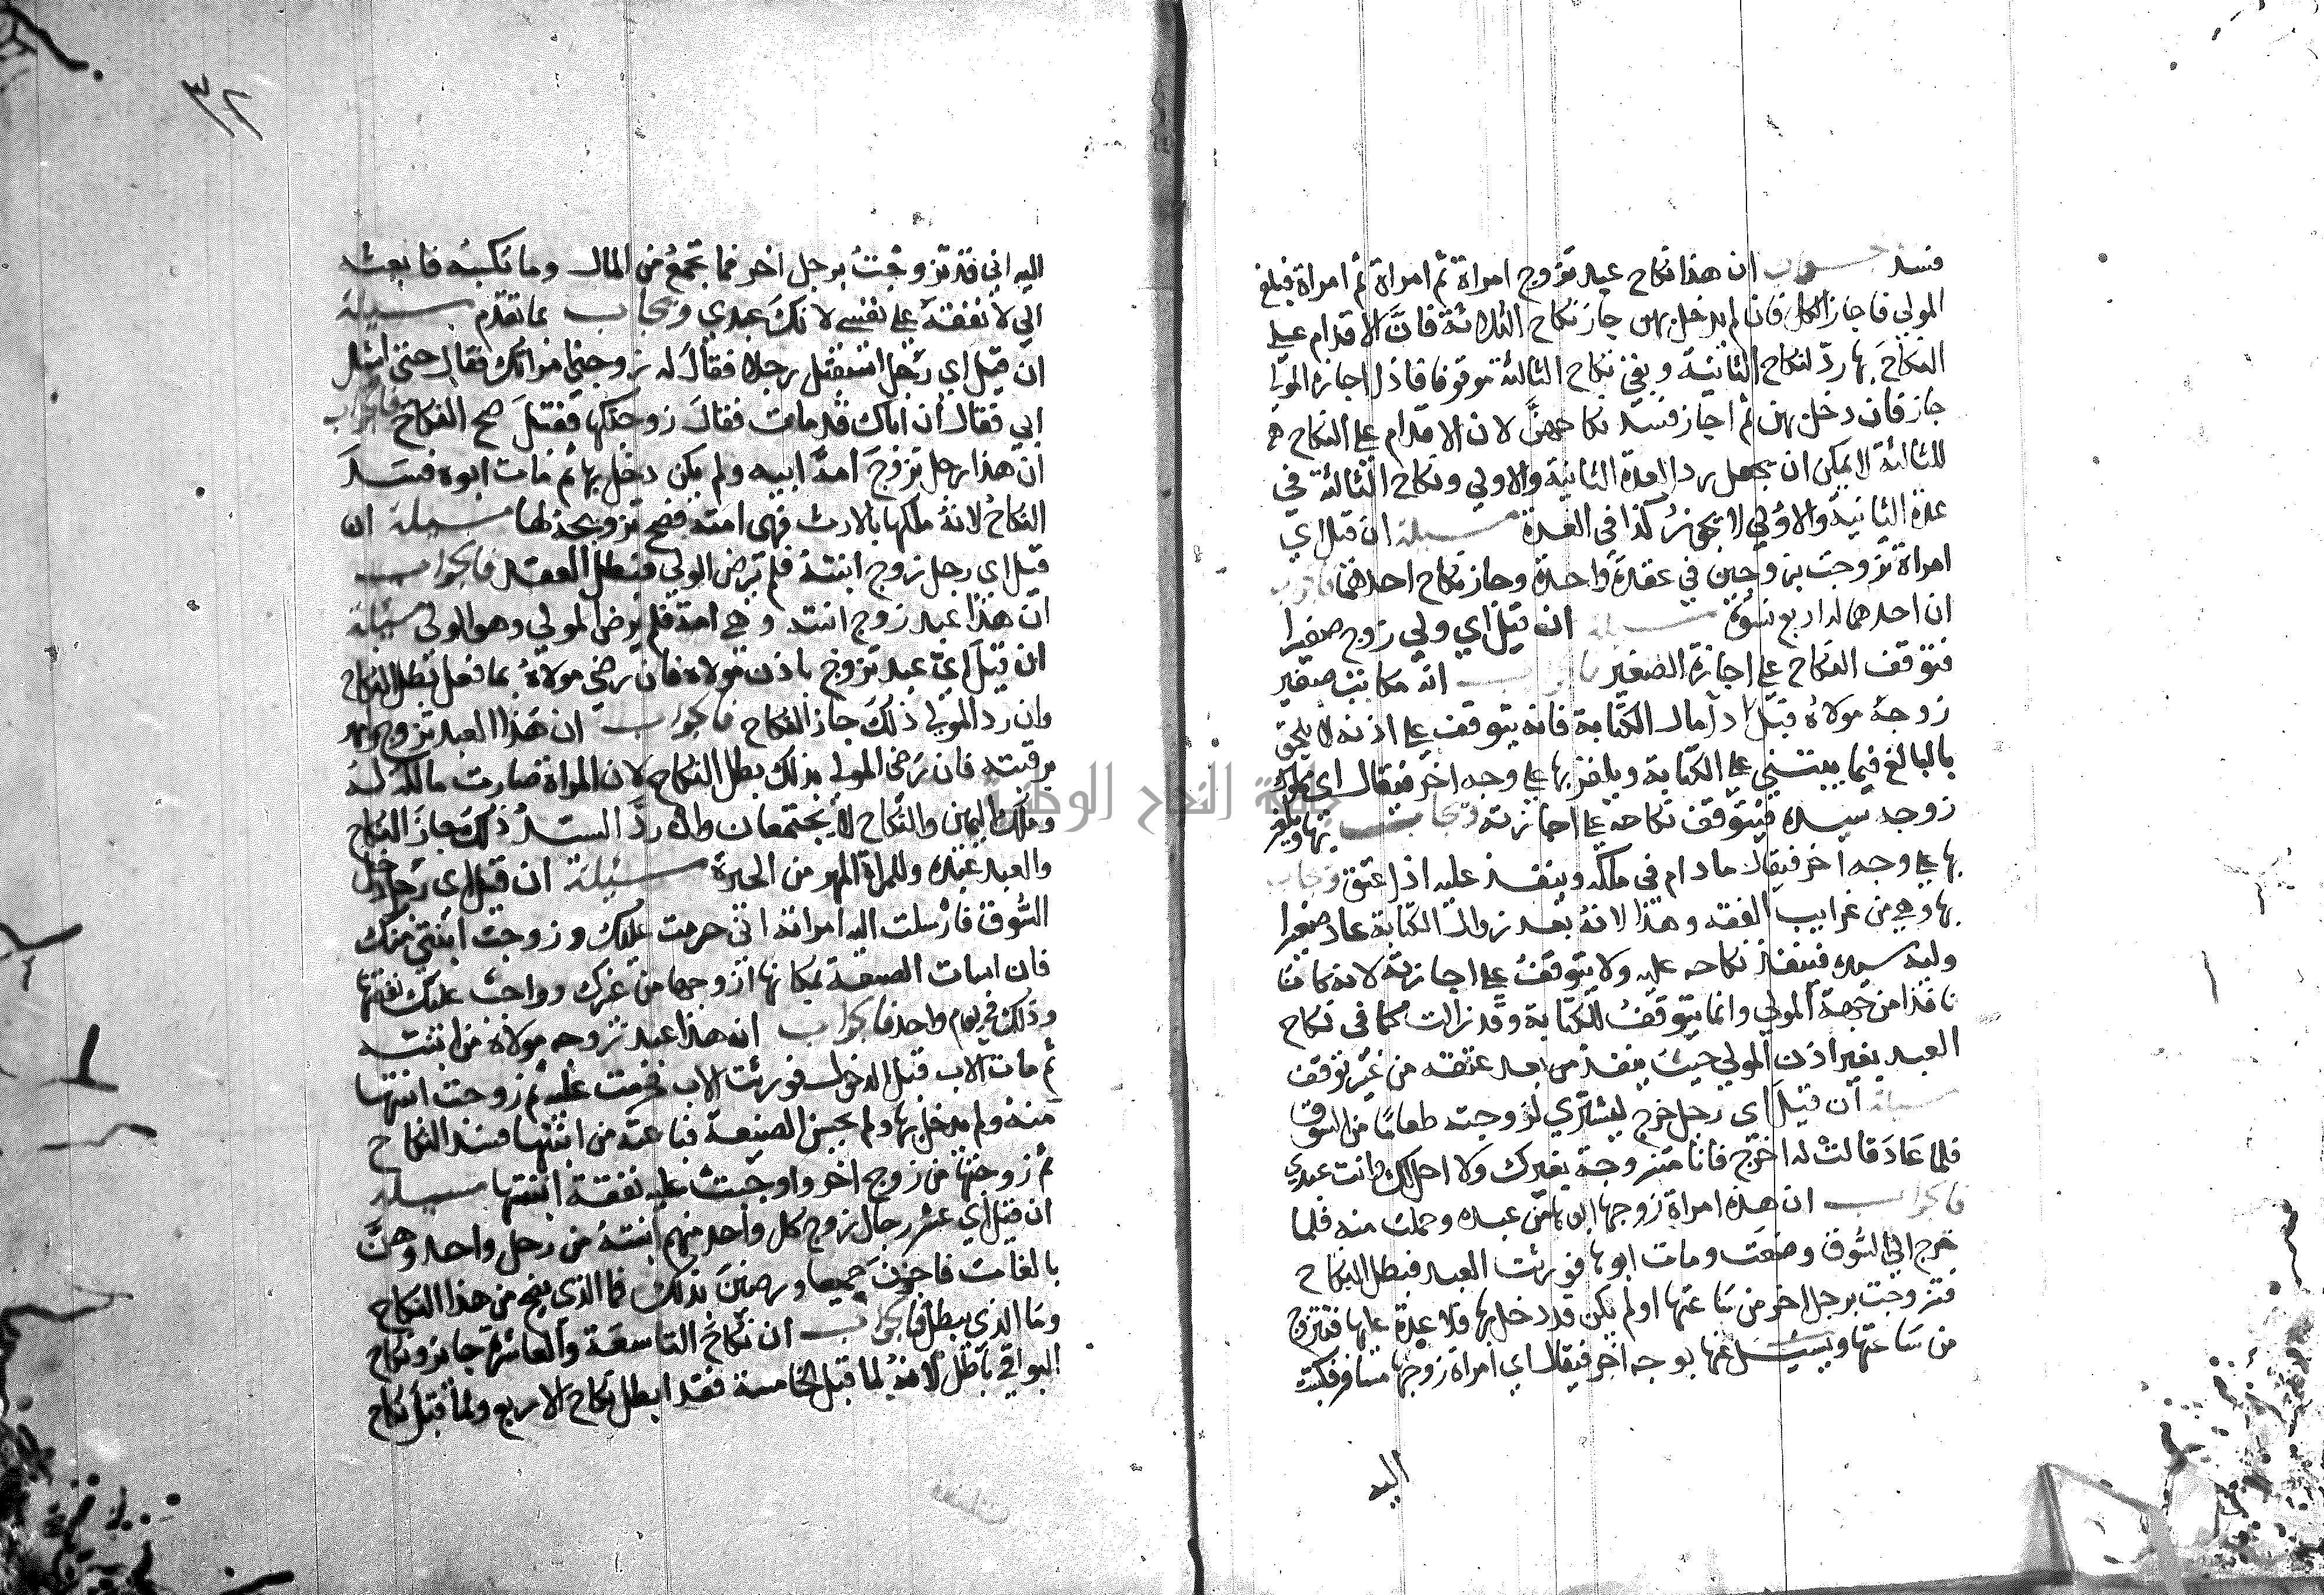 فسد جواب ان هذا نكاح عبد تزوج امراة ثم امراة ثم امراة فبلغ
المولي فاجاز الكل فان لم يدخل بهن جاز نكاح الثالثة فان الاقدام علي
النكاح بها رد لنكاح الثانية وبقي نكاح الثالثة موقوفا فاذا اجازه المولي
جاز فان دخل بهن ثم اجاز فسد نكاحهن لان الاقدام علي النكاح
للثالثة لا يمكن ان يجعل رد العدة الثانية والاولي ونكاح الثالثة في
عدة الثانية والاولي لا يجوز كذا في العدة مسيلة ان قيل اي
امراة تزوجت بزوجين في عقدة واحدة وجاز نكاح احدهما فالجواب
ان احدهما له اربع نسوة مسيلة ان قيل اي ولي زوج صغيرا
فتوقف النكاح علي اجازة الصغير فالجواب انه مكاتب صغير
زوجه مولاه قبل اداء مال الكتابة فانه يتوقف علي اذنه لا يلحق
بالبالغ فيما يبتني علي الكتابة ويلغز بها علي وجه اخر فيقال اي مملوك
زوجه سيده فيتوقف نكاحه علي اجازته ويجاب بها ويلغز
بها علي وجه اخر فيقال ما دام في ملكه وينفذ عليه اذا عتق ويجاب
بها وهي من غرايب الفقه وهذا لانه بعد زوال الكتابة عاد صغيرا
وليه سيده فينفذ نكاحه عليه ولا يتوقف علي اجازته لانه كان
نافذا من جهة المولي وانما يتوقف للكتابة وقد زالت كما في نكاح
العبد بغير اذن المولي حيث ينفذ من بعد عتقه من غير توقف
مسيلة ان قيل اي رجل خرج ليشتري لزوجته طعاما من السوق
فلما عاد قالت له اخرج فانا متزوجة بغيرك ولا احل لك وانت عبدي
فالجواب ان هذه امراة زوجها ابوها من عبده وحملت منه فلما
خرج الي السوق وضعت ومات ابوها فورثت العبد فبطل النكاح
فتزوجت برجل اخر من ساعتها او لم يكن قد دخل بها فلا عدة عليها فتتزوج
من ساعتها ويسيل عنها بوجه اخر فيقال اي امراة زوجها مسافر فكتبت
اليه
٣٢
اليه اني قد تزوجت برجل اخر فما تجمع من المال وما تكسبه فابعثه
الي لانفقه علي نفسي لانك عبدي ويجاب بما تقدم مسيلة
ان قيل اي رجل استقتل رجلا فقال له زوجني امراتك فقال حتي اسل
ابي فقال ان اباك قد مات فقال زوجتكها فقتل صح النكاح فالجواب
ان هذا رجل تزوج امة ابيه ولم يكن دخل بها ثم مات ابوه فسد
النكاح لانه ملكها بالارث فهي امته فصح تزويجه لها مسيلة ان
قيل اي رجل زوج ابنته فلم يرض الولي فبطل العقد فالجواب
ان هذا عبد زوج ابنته وهي امة فلم يرض المولي وهو الولي مسيلة
ان قيل اي عبد تزوج باذن مولاه فان رضي مولاه بما فعل بطل النكاح
وان رد المولي ذلك جاز النكاح فالجواب ان هذا العبد تزوج
برقبته فان رضي المولي بذلك بطل النكاح لان المراة صارت مالكة له
وملك اليمين والنكاح لا يجتمعان وان رد السيد ذلك جاز النكاح
والعبد عبده وللمراة المهر من الحرة مسيلة ان قيل اي رجل دخل
السوق فارسلت اليه امراته اني حرمت عليك وزوجت ابنتي منك
فان اسات الصنعة بمكانها ازوجها من غيرك وواجب عليك نفقتها
وذلك في يوم واحد فالجواب انه هذا عبد تزوجه مولاه من ابنته
ثم مات الاب قبل الدخول فورثت الاب فحرمت عليه ثم زوجت ابنتها
منه ولم يدخل بها ولم يحسن الصنيعة فباعته من ابنتها فسد النكاح
ثم زوجتها من زوج اخر واوجبت عليه نفقة ابنتها مسيلة
ان قيل اي عشر رجال زوج كل واحد منهم ابنته من رجل واحد وهن
بالغات فاجزن جميعا ورضين بذلك فما الذي يصح من هذا النكاح
وما الذي يبطل فالجواب ان نكاح التاسعة والعاشرة جايز ونكاح
البواقي باطل لانه لما قبل الخامسة فقد ابطل نكاح الاربع ولما قبل نكاح
جامعة النجاح الوطنية